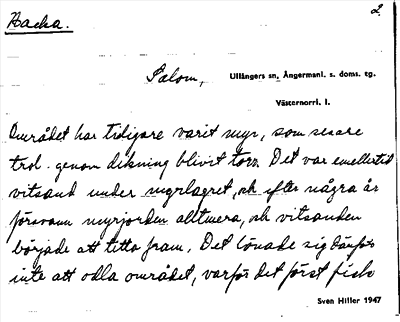 Backa.
2.
Salom,
Ullångers sn, Ångermanl. s. doms. tg.
Västernorrl. l.
Området har tidigare varit myr, som senare
trol. genom dikning blivit torr. Det var emellertid
vitsand under myrlagret, och efter några år
försvann myrjorden alltmera, och vitsanden
började att titta fram. Det lönade sig därför
inte att odla området, varför det först fick
Sven Hiller 1947